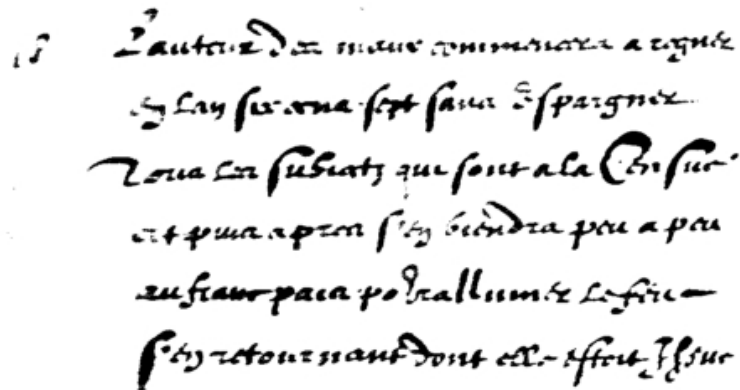 18 Lauteur des maux commencera a regner
en lan six cens sept sans Espargner
Tous les subiectz qui sont a la Censue
et puis apres sen viendra peu a peu
au franc pais por rallumer le feu
sen retournant dont elle estoit Issue